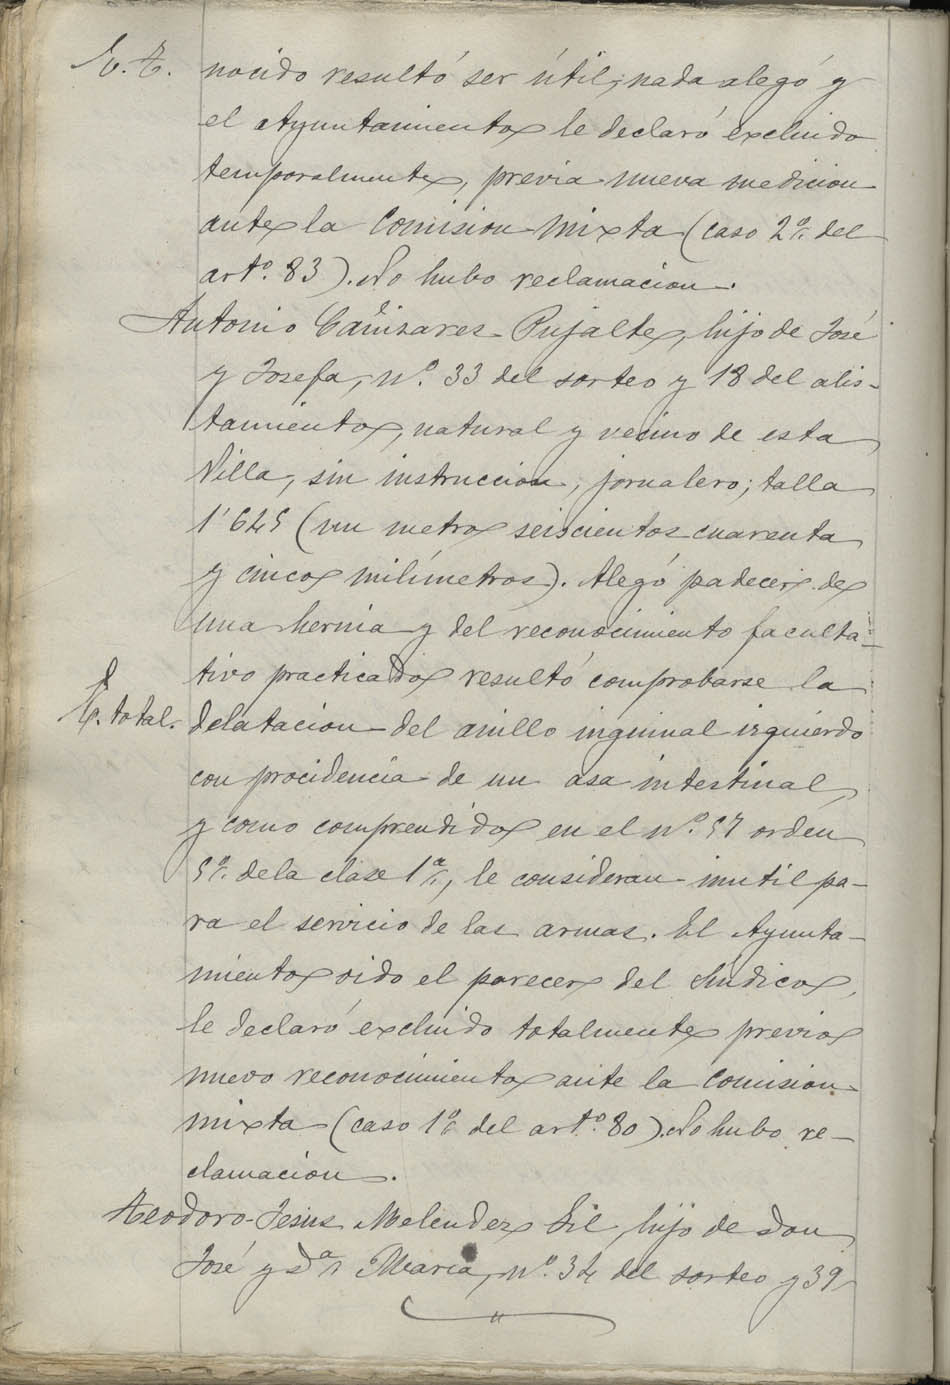 E. T. nocido resultó ser útil, nada alegó y
el Ayuntamiento le declaró excluido
temporalmente, previa nueva medicion
ante la Comision mixta (caso 2º del
artº. 83). No hubo reclamacion.
Antonio Cañizares Pujalte, hijo de José
y Josefa, nº. 33 del sorteo y 18 del alis-
tamiento, natural y vecino de esta
Villa, sin instruccion, jornalero; talla
1'645 (un metro seiscientos cuarenta
y cinco milímetros). Alegó padecer de
una hernia y del reconocimiento faculta-
tivo practicado resultó comprobarse la
E. total. delatacion del anillo inguinal izquierdo
con procidencia de un asa intestinal,
y como comprendido en el nº. 57 orden
5º. de la clase 1ª, le consideran inutil pa-
ra el servicio de las armas. El Ayunta-
miento oido el parecer del Síndico,
le declaró excluido totalmente previo
nuevo reconocimiento ante la Comision
mixta (caso 1º del artº. 80). No hubo re-
clamacion.
Teodoro Jesus Melendez Gil, hijo de Don
José y Dª María, nº. 34 del sorteo y 39